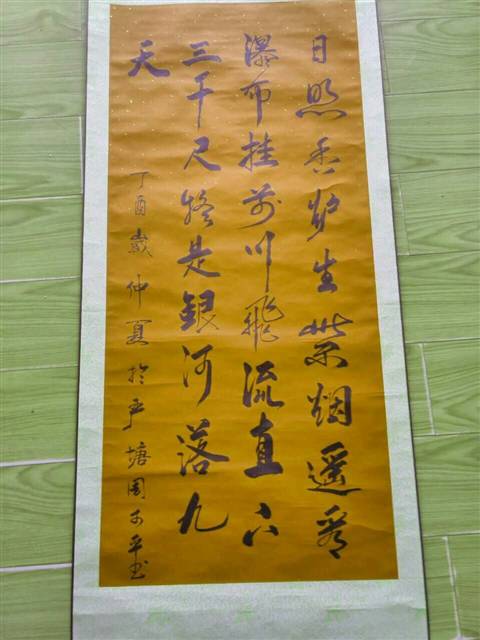 日照香炉生紫烟遥看
瀑布挂前川飛流直下
三千尺疑是銀河落九
天
丁酉歲仲夏於塘周平书